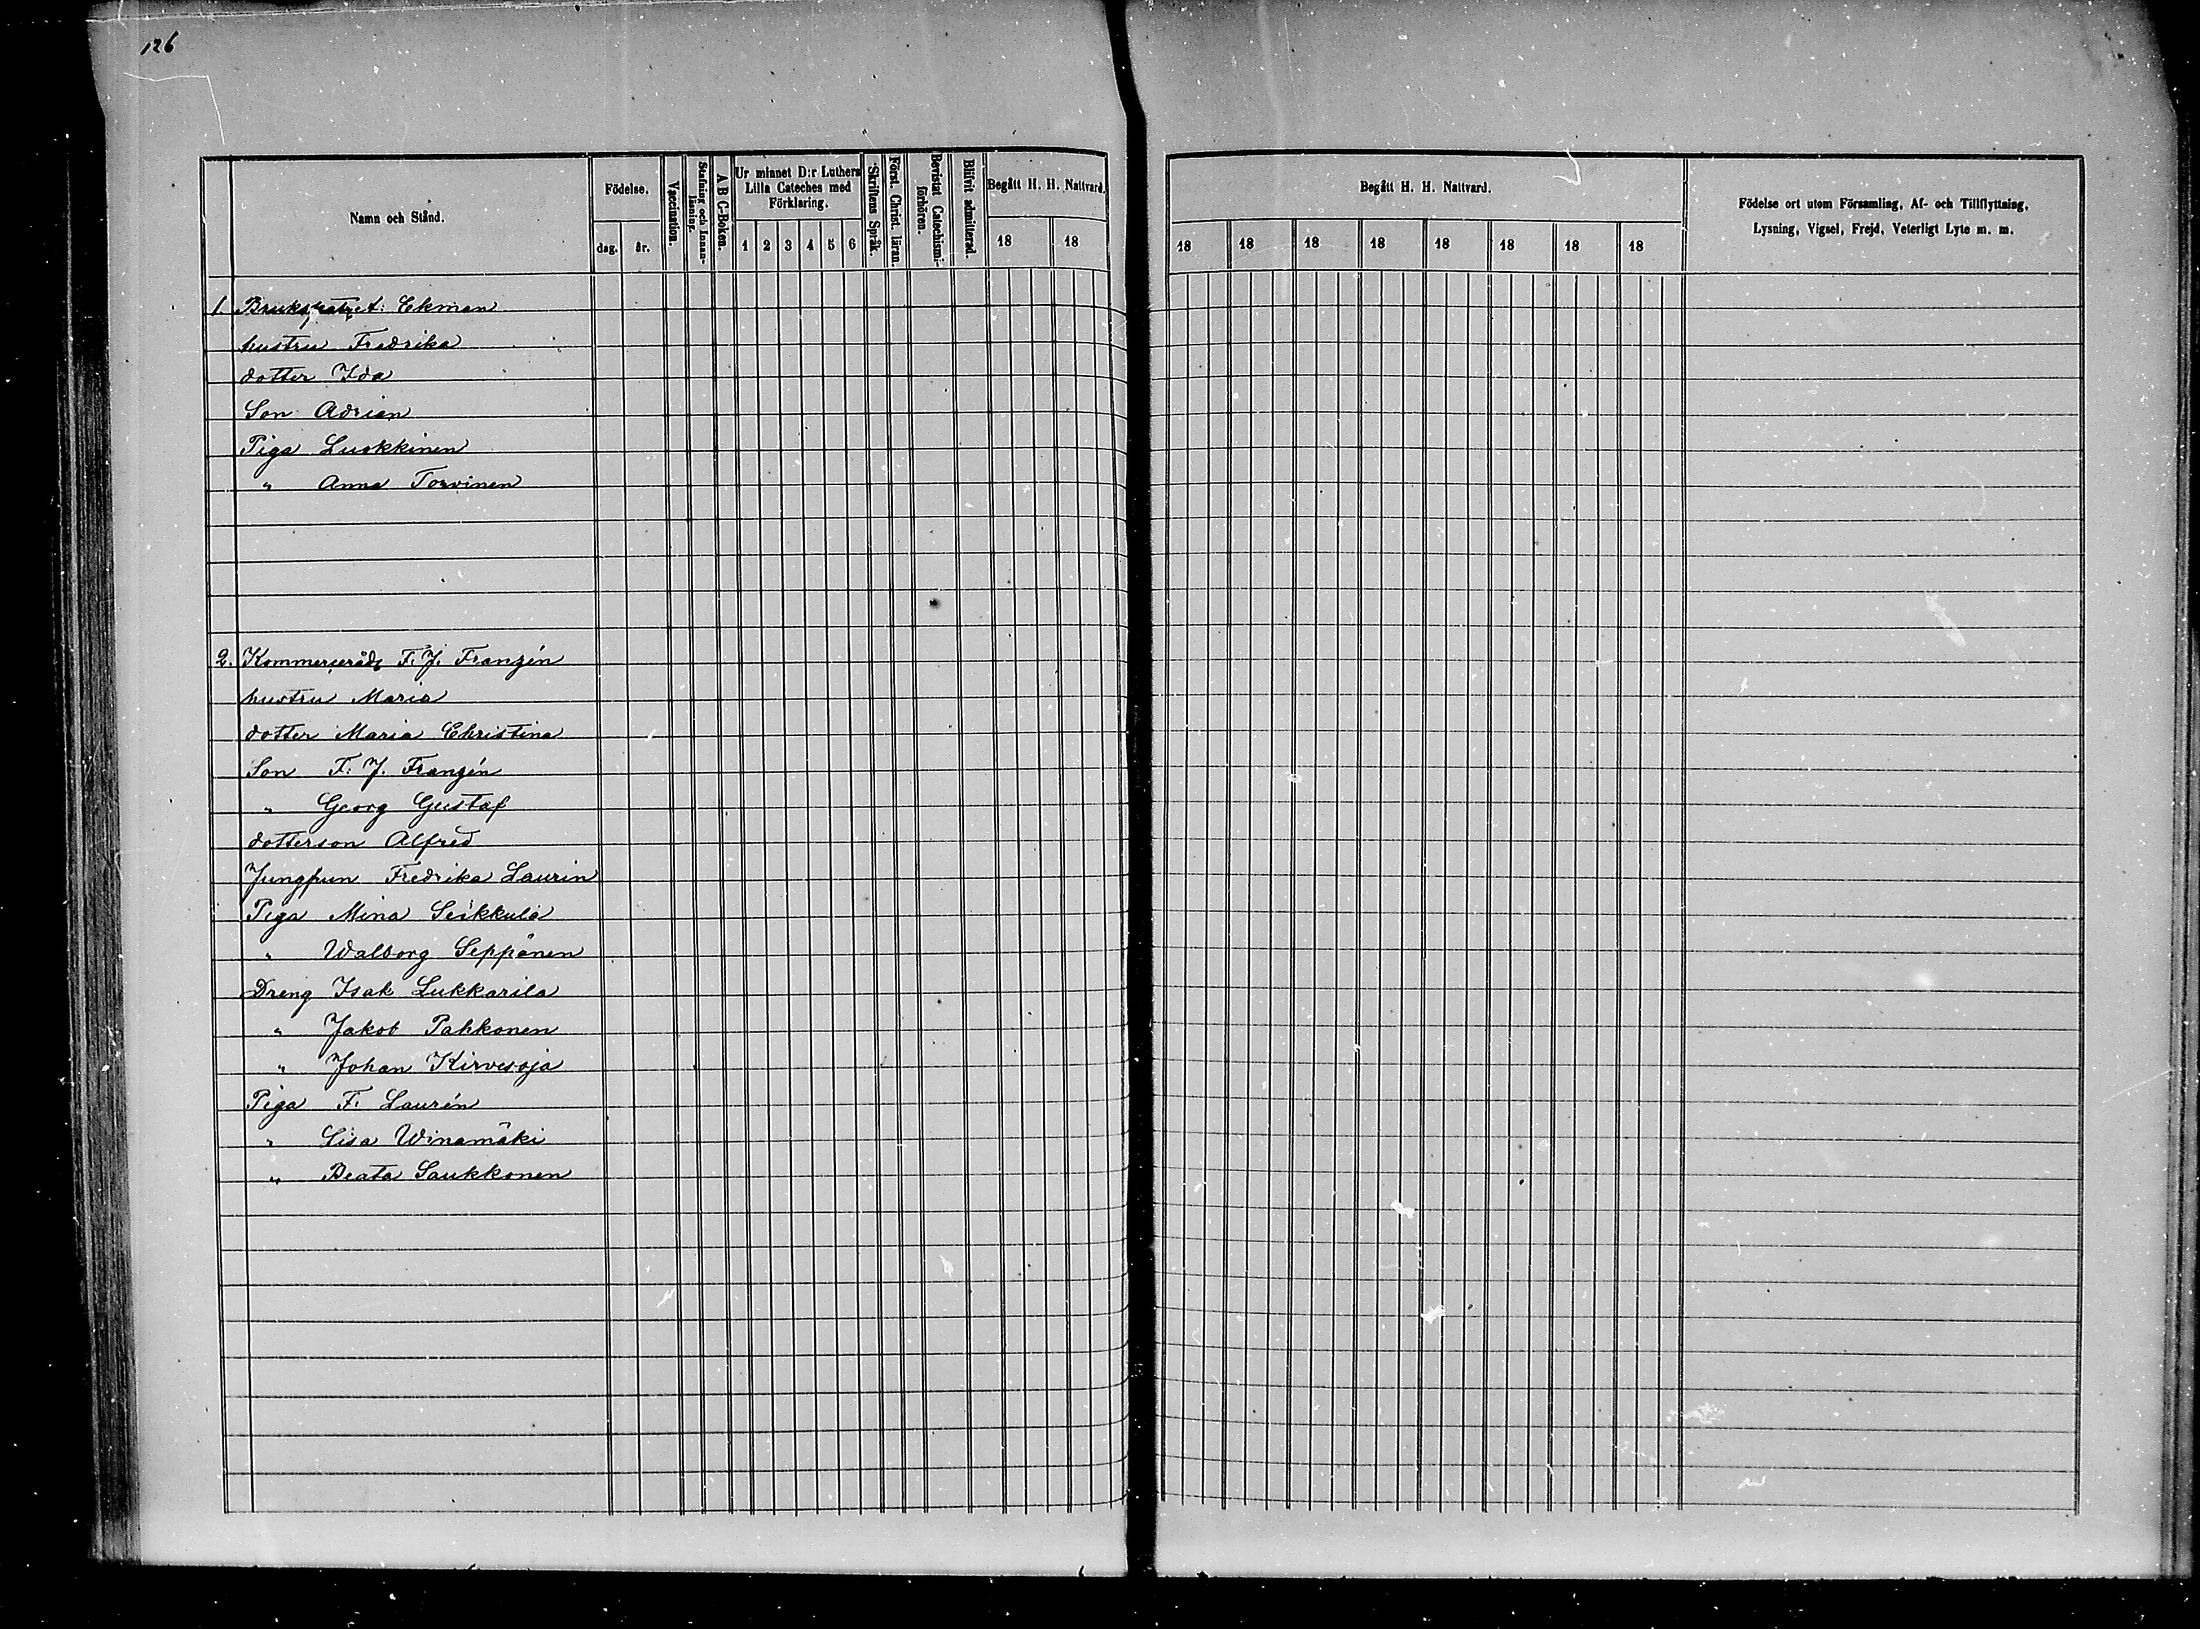 126
Namn och Stånd.
Födelse.
dag. år.
Vaccination.
Stafning och Innan-
läsning.
A B C-Boken.
Ur minnet D:r Luthers
Lilla Cateches med
Förklaring.
1 2 3 4 5 6
Skriftens Språk.
Först. Christ. läran.
Bevistat Catechismi-
förhören.
Blifvit admitterad.
Begått H. H. Nattvard.
18 18
Begått H. H. Nattvard.
18 18 18 18 18 18 18 18
Födelse ort utom Församling, Af- och Tillflyttning,
Lysning, Vigsel, Frejd, Veterligt Lyte m. m.
1. Ekman
hustru Fredrika
dotter Ida
Son Adrian
Piga Luokkinen
" Anna Torvinen
2. Kommerseråd F. J. Franzén
hustru Maria
dotter Maria Christina
Son F. J. Franzén
" Georg Gustaf
dotterson Alfred
Jungfrun Fredrika Laurin
Piga Mina Seikkula
" Walborg Seppänen
Dreng Isak Lukkarila
" Jakob Pahkonen
" Johan Kirvesoja
Piga F. Laurén
" Lisa Winamäki
" Beata Saukkonen